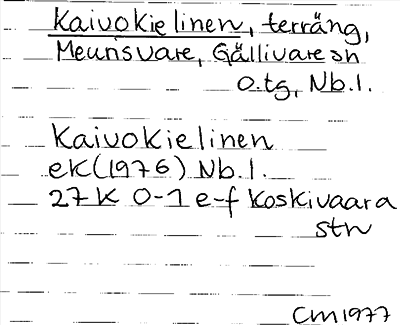 Kaivokielinen, terräng,
Meunsvare, Gällivare sn
o.tg, Nb.l.
Kaivokielinen
ek(1976) Nb.l.
27K 0-1 e-f Koskivaara
stn
CM1977